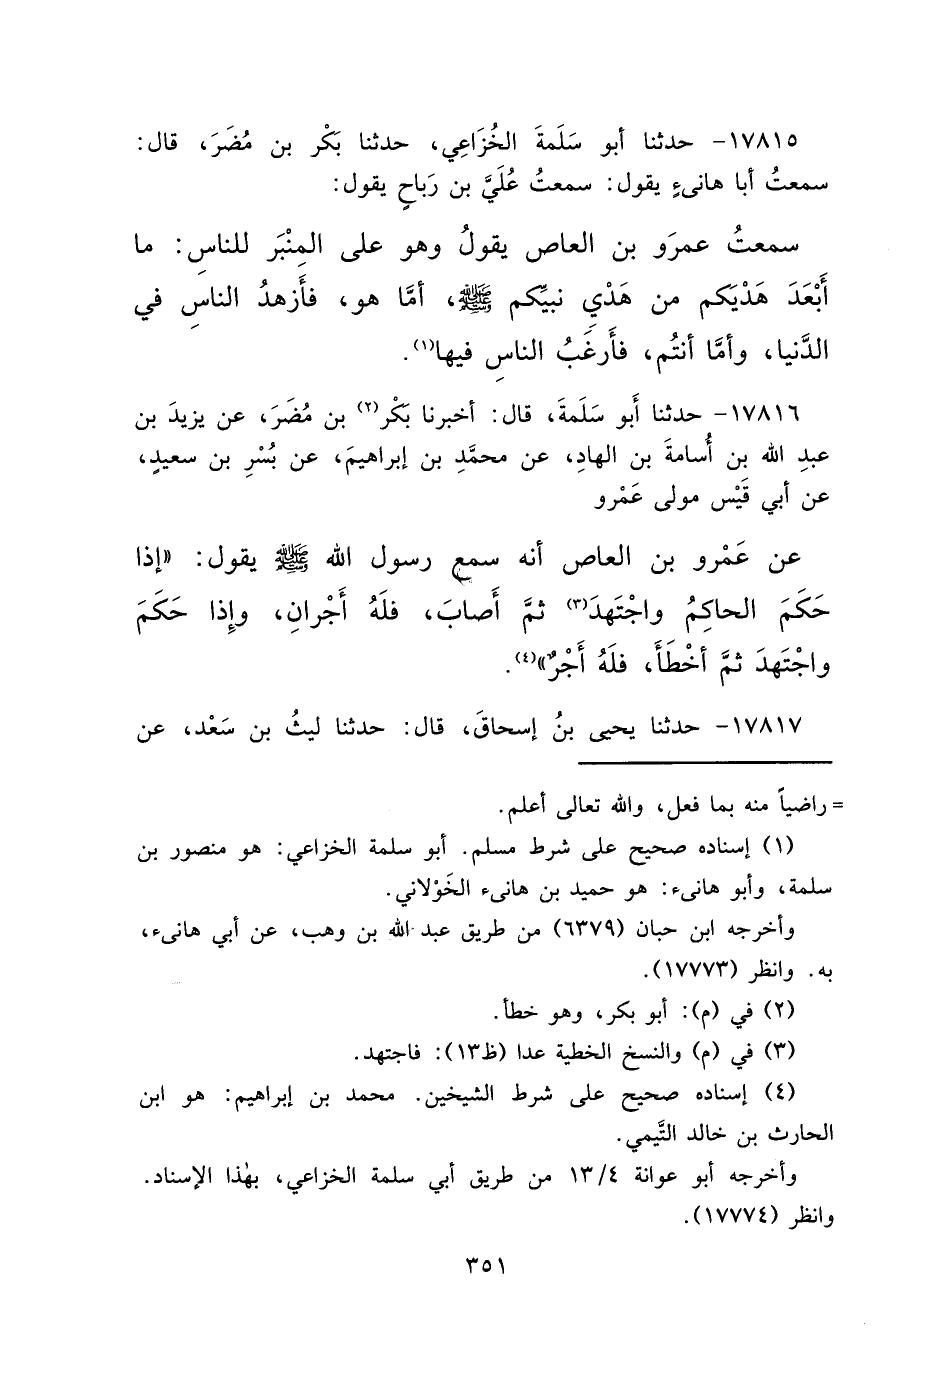 ١٧٨١٥- حدثنا أبو سَلَمةَ الخُزَاعِي، حدثنا بَكْر بن مُضَرَ، قال:
سمعتُ أبا هانىءٍ يقول: سمعتُ عُلَيَّ بن رَباحٍ يقول:
سمعتُ عمرَو بن العاص يقولُ وهو على المِنْبَر للناسِ: ما
أَبْعَدَ هَدْيَكم من هَدْيِ نبيِّكم ﷺ، أمَّا هو، فأَزهدُ الناسِ في
الدَّنيا، وأمَّا أنتُم، فأَرغَبُ الناسِ فيها(١).
١٧٨١٦- حدثنا أَبو سَلَمةَ، قال: أخبرنا بَكْر(٢) بن مُضَرَ، عن يزيدَ بن
عبدِ الله بن أُسامةَ بن الهادِ، عن محمَّدِ بن إبراهيمَ، عن بُسْرِ بن سعيدٍ،
عن أبي قَيْس مولى عَمْرو
عن عَمْرو بن العاص أنه سمع رسول الله ﷺ يقول: «إذا
حَكَمَ الحاكِمُ واجْتَهدَ(٣) ثمَّ أَصابَ، فلَهُ أَجْرانِ، وإِذا حَكَمَ
واجْتَهدَ ثمَّ أخْطَأَ، فلَهُ أَجْرٌ»(٤).
١٧٨١٧- حدثنا يحيى بنُ إسحاقَ، قال: حدثنا ليثُ بن سَعْد، عن
= راضياً منه بما فعل، والله تعالى أعلم.
(١) إسناده صحيح على شرط مسلم. أبو سلمة الخزاعي: هو منصور بن
سلمة، وأبو هانىء: هو حميد بن هانىء الخَوْلاني.
وأخرجه ابن حبان (٦٣٧٩) من طريق عبد الله بن وهب، عن أبي هانىء،
به. وانظر (١٧٧٧٣).
(٢) في (م): أبو بكر، وهو خطأ.
(٣) في (م) والنسخ الخطية عدا (ظ١٣): فاجتهد.
(٤) إسناده صحيح على شرط الشيخين. محمد بن إبراهيم: هو ابن
الحارث بن خالد التَّيمي.
وأخرجه أبو عوانة ١٣/٤ من طريق أبي سلمة الخزاعي، بهٰذا الإسناد.
وانظر (١٧٧٧٤).
٣٥١